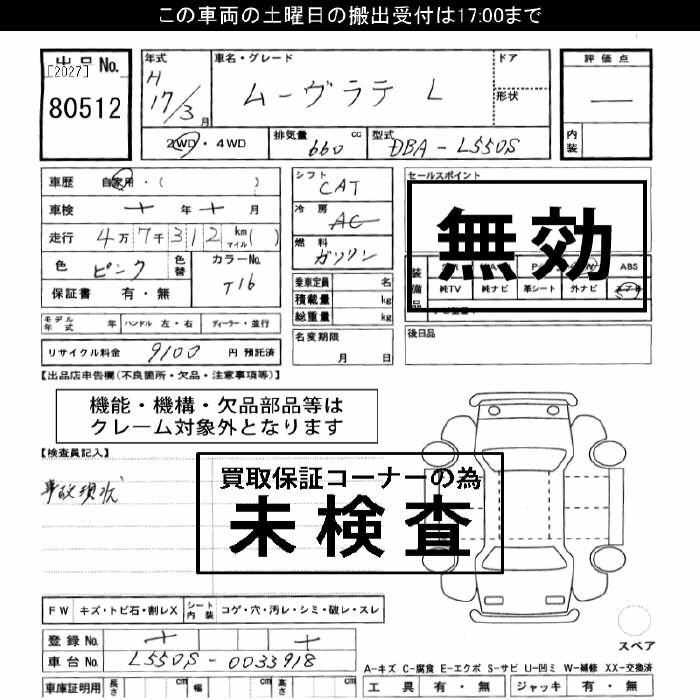 この車両の土曜日の搬出受付は17:00まで
出品No.
[2027]
80512
年式
H
17/3月
車名・グレード
ムーヴラテ L
ドア
形状
評価点
―
内装
2WD・4WD
排気量 660 cc
型式 DBA-L550S
車歴 自家用・( )
車検 年 月
走行 4万7千312 km マイル( )
色 ピンク 色替
カラーNo. T16
保証書 有・無
シフト
CAT
冷房
AC
燃料
ガソリン
乗車定員 名
積載量 kg
総重量 kg
セールスポイント
無効
装備品
ABS
純TV 純ナビ 革シート 外ナビ
モデル年式 年 ハンドル 左・右 ディーラー・並行
リサイクル料金 9100 円 預託済
名変期限
月 日
後日品
【出品店申告欄(不良箇所・欠品・注意事項等)】
機能・機構・欠品部品等は
クレーム対象外となります
【検査員記入】
事故現状
買取保証コーナーの為
未検査
FW キズ・トビ石・割レX シート内装 コゲ・穴・汚レ・シミ・破レ・スレ
登録No.
車台No. L550S-0033918
スペア
A-キズ C-腐食 E-エクボ S-サビ U-凹ミ W-補修 XX-交換済
車庫証明用 長さ cm 幅 cm 高さ cm
工具 有・無 ジャッキ 有・無